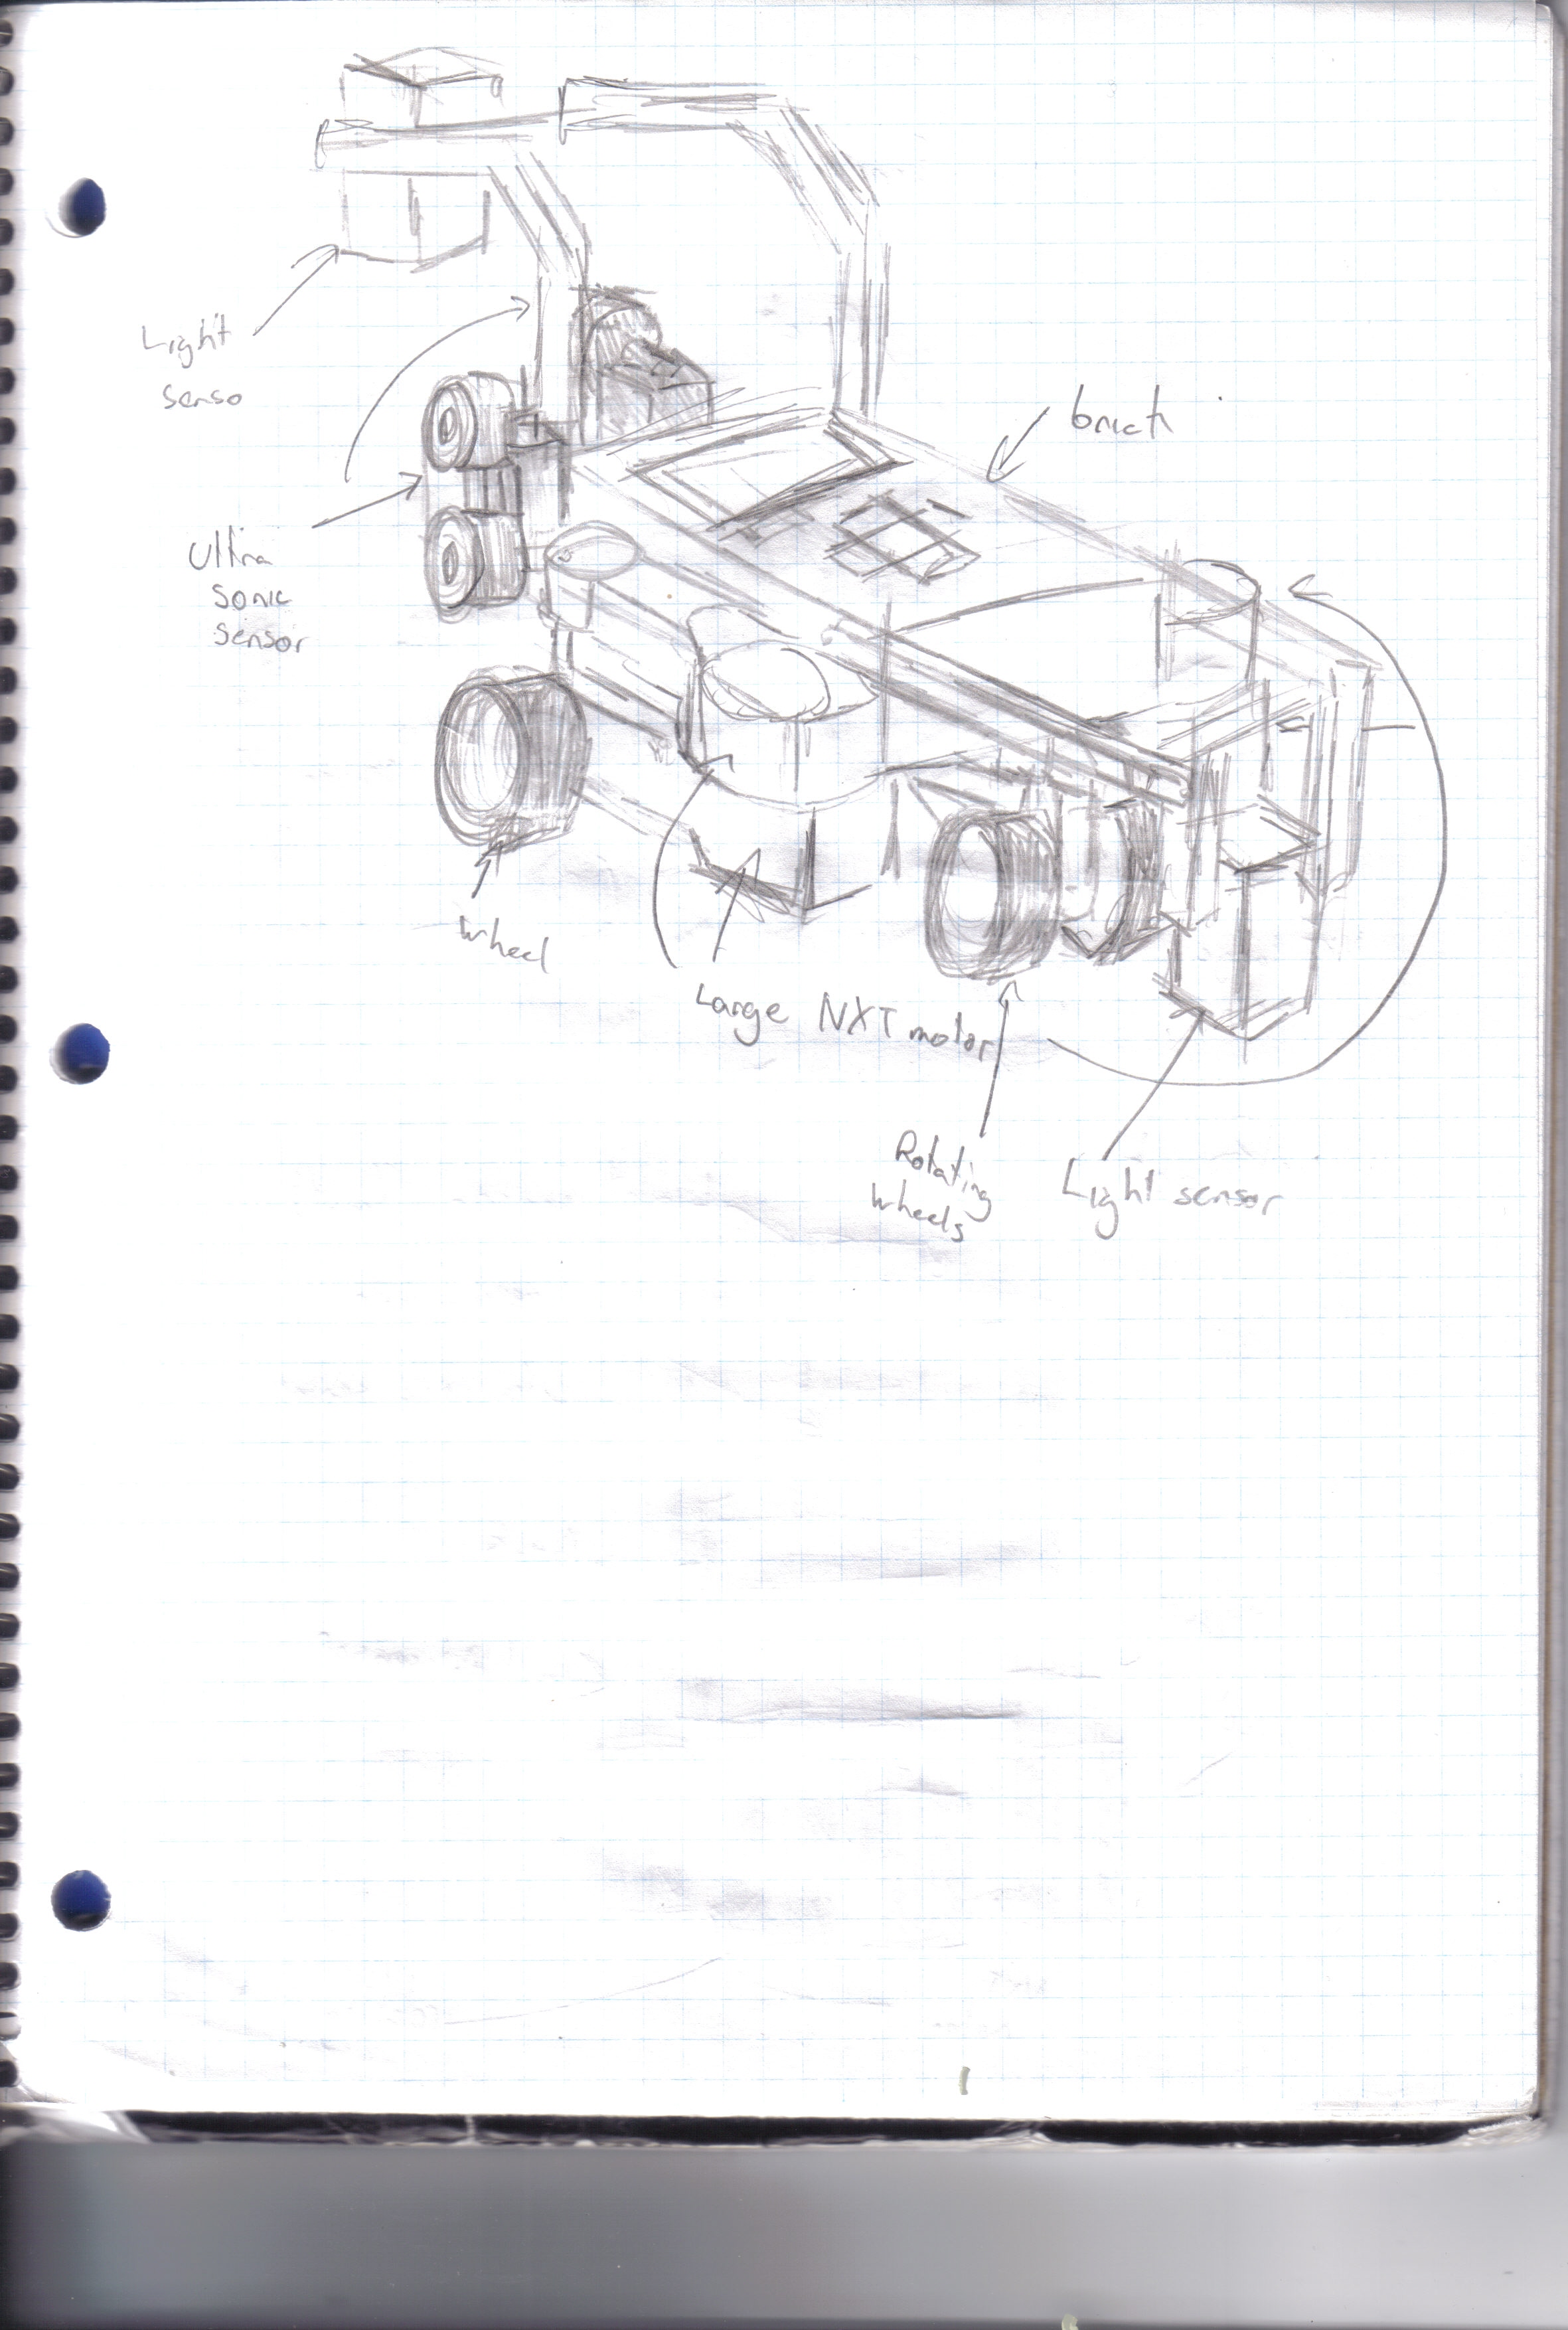 Light
senso
brick
Ultra
sonic
sensor
wheel
Large NXT motor
Rotating
wheels
Light sensor